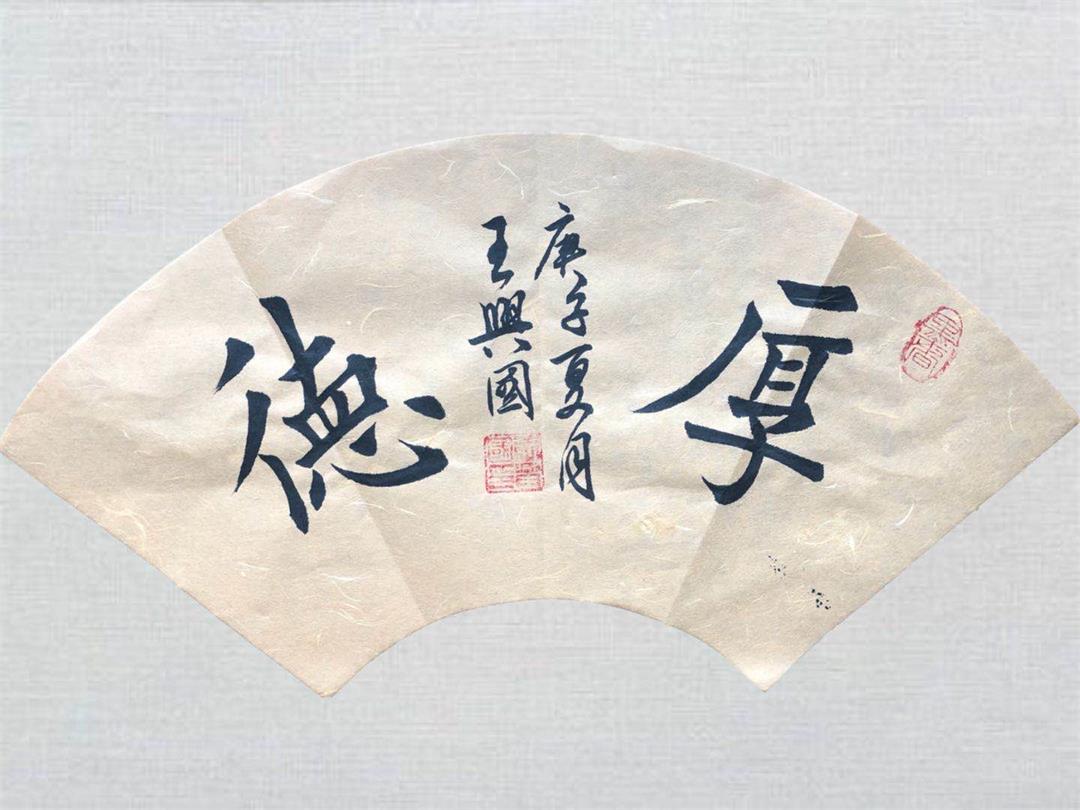 厚德
庚子夏月
王興國